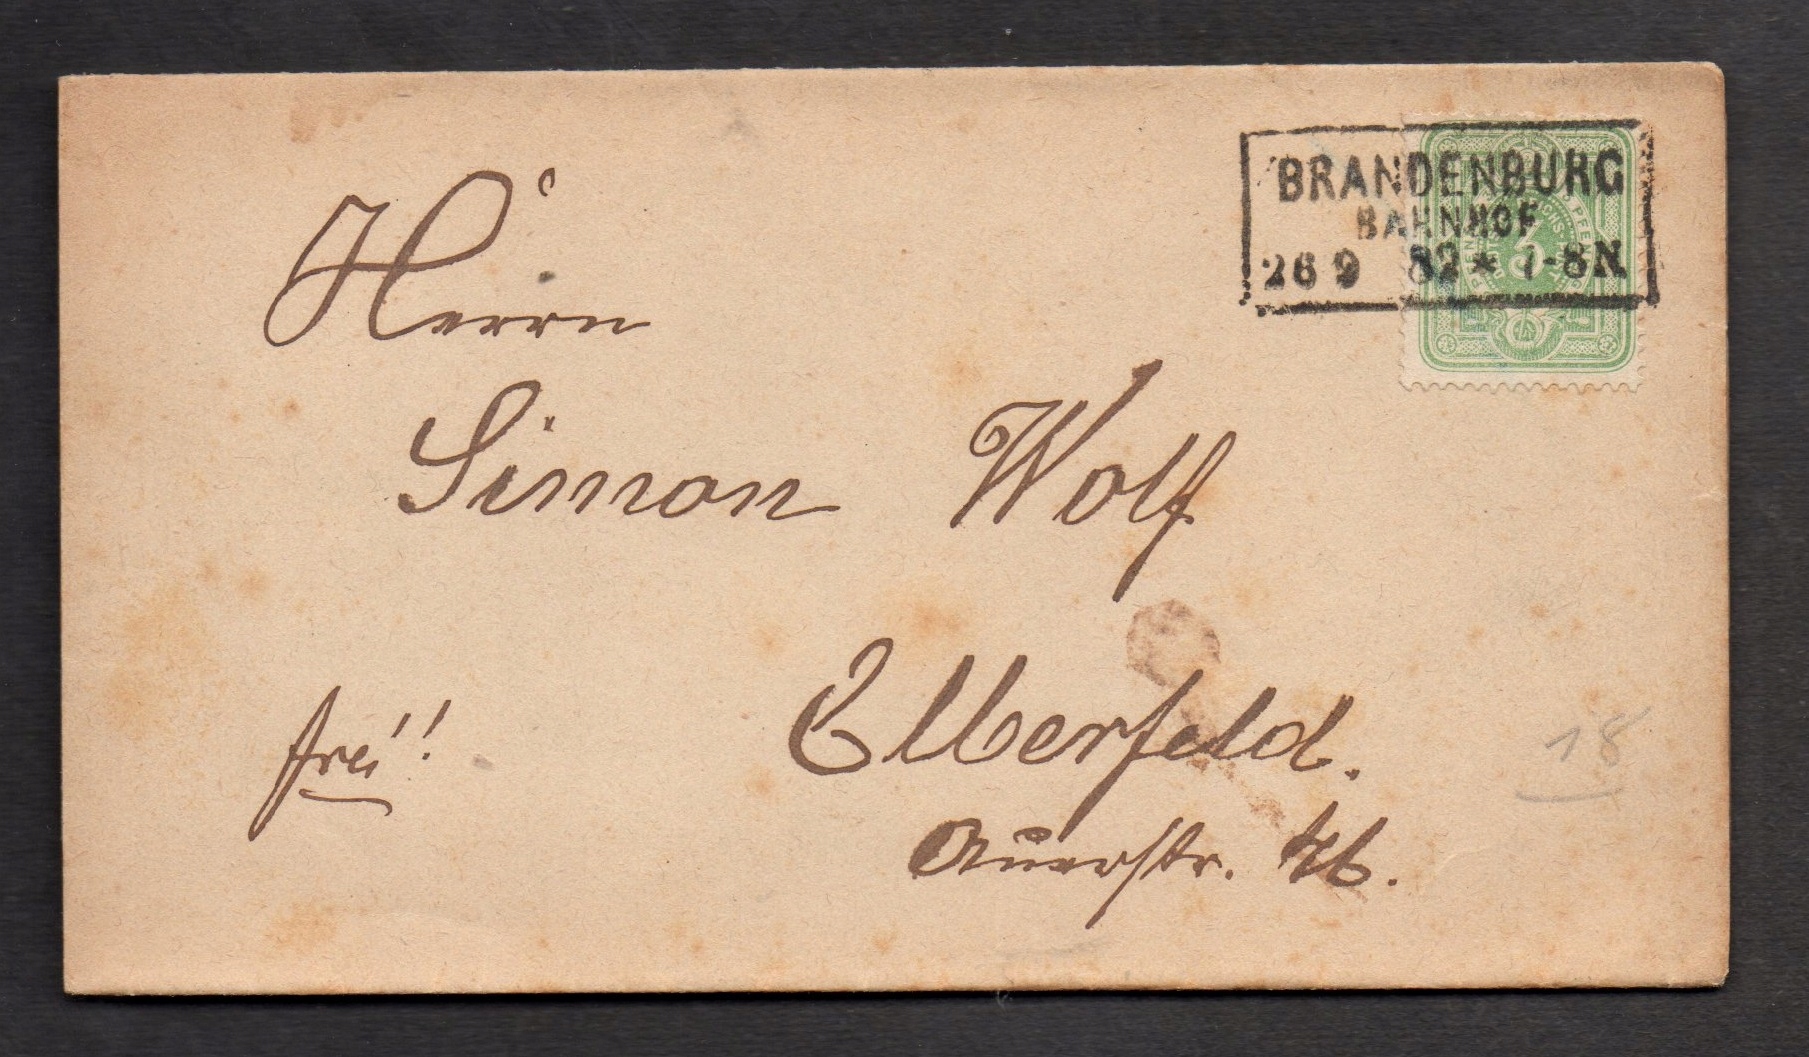 BRANDENBURG
BAHNHOF
26 9 82 * 7-8N.
3
Herrn
Simon Wolf
frei!
Elberfeld.
Auerstr. 46.
18